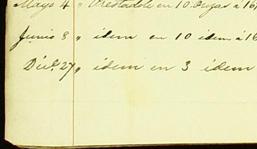 Mayo 4 " Prestadole en 10. Degas a 16
Junio 8 " idem en 10 idem a 16
Dice. 27 " idem en 3 idem